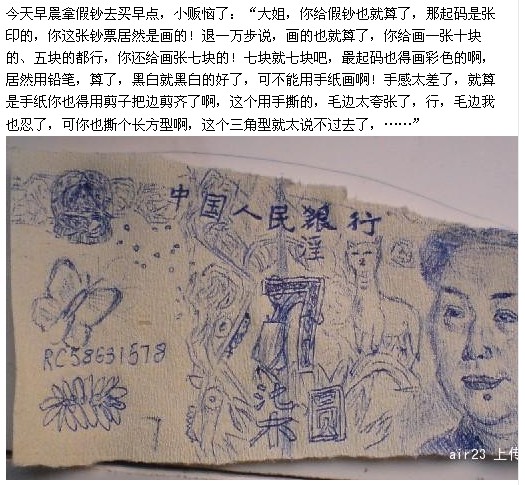 今天早晨拿假钞去买早点，小贩恼了：“大姐，你给假钞也就算了，那起码是张
印的，你这张钞票居然是画的！退一万步说，画的也就算了，你给画一张十块
的、五块的都行，你还给画张七块的！七块就七块吧，最起码也得画彩色的啊，
居然用铅笔，算了，黑白就黑白的好了，可不能用手纸画啊！手感太差了，就算
是手纸你也得用剪子把边剪齐了啊，这个用手撕的，毛边太夸张了，行，毛边我
也忍了，可你也撕个长方型啊，这个三角型就太说不过去了，……”
中国人民银行
RC58631578
圆
7
air23 上传